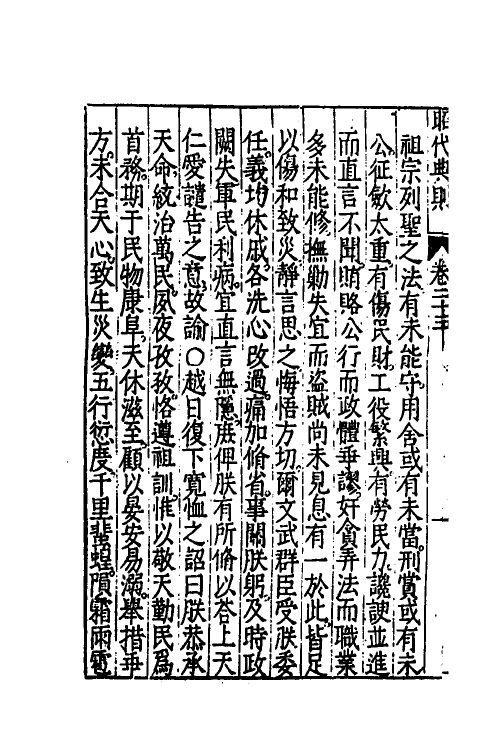 昭代典則 卷二十三
祖宗列聖之法有未能守用舍或有未當刑賞或有未
公征歛太重有傷民財工役繁興有勞民力讒諛並進
而直言不聞賄賂公行而政體乖謬奸貪弄法而職業
多未能修撫勦失宜而盜賊尚未見息有一於此皆足
以傷和致災靜言思之悔悟方切爾文武群臣受朕委
任義均休戚各洗心改過痛加脩省事關朕躬及時政
闕失軍民利病宜直言無隱庶俾朕有所脩以荅上天
仁愛譴告之意故諭○越日復下寬恤之詔曰朕恭承
天命統治萬民夙夜孜孜恪遵祖訓惟以敬天勤民爲
首務期于民物康阜天休滋至顧以晏安易溺舉措乖
方未合天心致生災變五行愆度千里蜚蝗隕霜雨雹